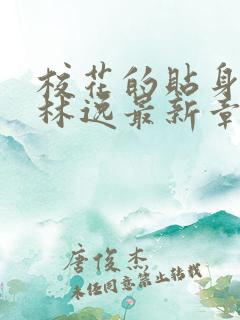 校花的贴身
林逸最新章
唐俊杰
未经同意禁止转载